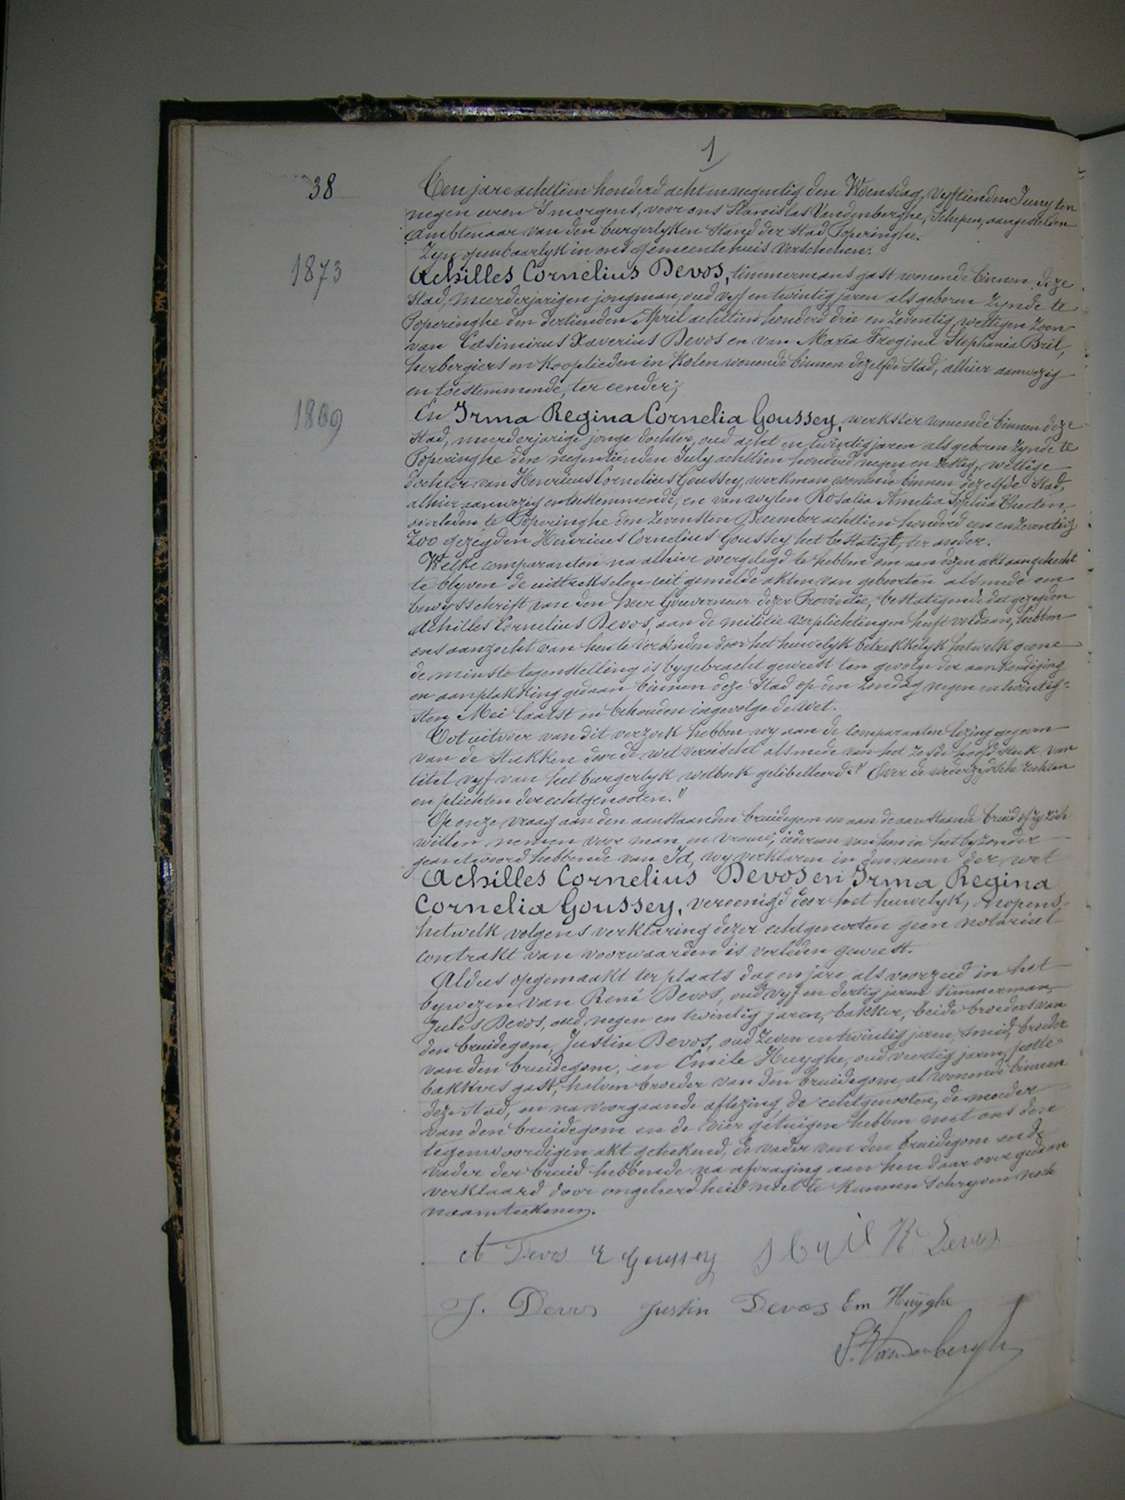 1
38
Ten jare achttien honderd acht en negentig den Woensdag, vyftienden Juny ten
negen uren 's morgens, voor ons Stanislas Vandenberghe, Schepen, aangestelden
ambtenaar van den burgerlyken stand der stad Poperinghe.
Zyn openbaarlyk in ons gemeentehuis verschenen:
1873
Achilles Cornelius Devos, timmermans gast wonende binnen deze
stad, meerderjarigen jongman, oud vyf en twintig jaren als geboren zynde te
Poperinghe den dertienden April achttien honderd drie en zeventig, wettigen zoon
van Casimirus Xaverius Devos en van Maria Stephania Bril,
herbergiers en kooplieden in kolen wonende binnen dezelfde stad, alhier aanwezig
en toestemmende, ter eender;
1869
En Irma Regina Cornelia Goussey, werkster wonende binnen deze
stad, meerderjarige jonge dochter, oud acht en twintig jaren als geboren zynde te
Poperinghe den negentienden July achttien honderd negen en zestig, wettige
dochter van Henricus Cornelius Goussey werkman wonende binnen dezelfde stad,
alhier aanwezig en toestemmende, en van wylen Rosalia Amelia Sophia
overleden te Poperinghe den zevensten December achttien honderd een en zeventig
zoo gezeyden Henricus Cornelius Goussey het bestatigt, ter ander.
Welke comparanten na alhier overgelegd te hebben om aan dezen akt aangehecht
te blyven de uittrekselen uit gemelde akten van geboorten alsmede een
bewysschrift van den heer Gouverneur dezer Provincie, bestatigende dat gezeyden
Achilles Cornelius Devos, aan de militie verplichtingen heeft voldaan, hebben
ons aanzocht van hen te verbinden door het huwelyk betrekkelyk hetwelk geene
de minste tegenstelling is bygebracht geweest ten gevolge der aankondiging
en aanplakking gedaan binnen deze stad op den zondag negen en twintig-
sten Mei laatst en behouden ingevolge de wet.
Tot uitvoer van dit verzoek hebben wy aan de comparanten lezing gegeven
van de stukken door de wet vereischt alsmede van het zesde hoofdstuk van
titel vyf van het burgerlyk wetboek gelibelleerd: "Over de wederzydsche rechten
en plichten der echtgenooten."
Op onze vraag aan den aanstaanden bruidegom en aan de aanstaande bruid of zy zich
willen nemen voor man en vrouw, iedereen van hen in het byzonder
geantwoord hebbende van Ja, wy verklaren in den naam der wet
Achilles Cornelius Devos en Irma Regina
Cornelia Goussey, vereenigd door het huwelyk, nopens
hetwelk volgens verklaring dezer echtgenooten geen notarieel
contrakt van voorwaarden is verleden geweest.
Aldus opgemaakt ter plaats dag en jare als voorzeid in het
bywezen van René Devos, oud vyf en dertig jaren timmerman,
Jules Devos, oud negen en twintig jaren, bakker, beide broeders van
den bruidegom, Justin Devos, oud zeven en twintig jaren, smid, broeder
van den bruidegom, en Emile Huyghe, oud veertig jaren, potte-
bakkers gast, halven broeder van den bruidegom, al wonende binnen
deze stad, en na voorgaande aflezing de echtgenooten, de moeder
van den bruidegom en de vier getuigen hebben met ons deze
tegenwoordigen akt geteekend, de vader van den bruidegom en de
vader der bruid hebbende na afvraging aan hen daar over gedaan
verklaard door ongeleerdheid niet te kunnen schryven noch
naamteekenen.
A Devos Goussey R Devos
J. Devos Justin Devos Em Huyghe
S. Vandenberghe